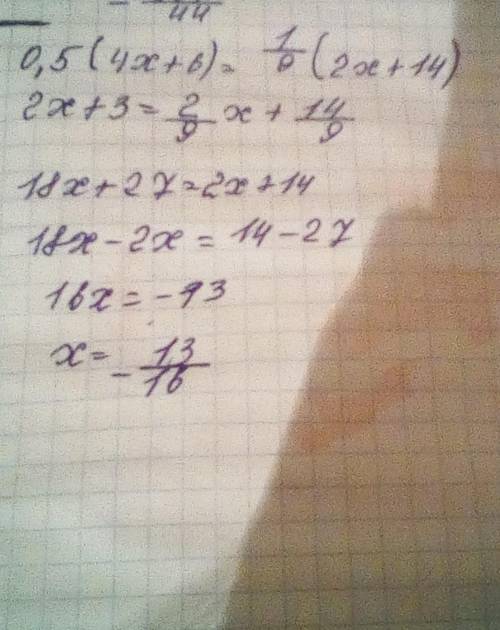 44
0,5(4x+6)= 1/9 (2x+14)
2x+3= 2/9 x + 14/9
18x+27=2x+14
18x-2x=14-27
16x=-13
x= - 13/16